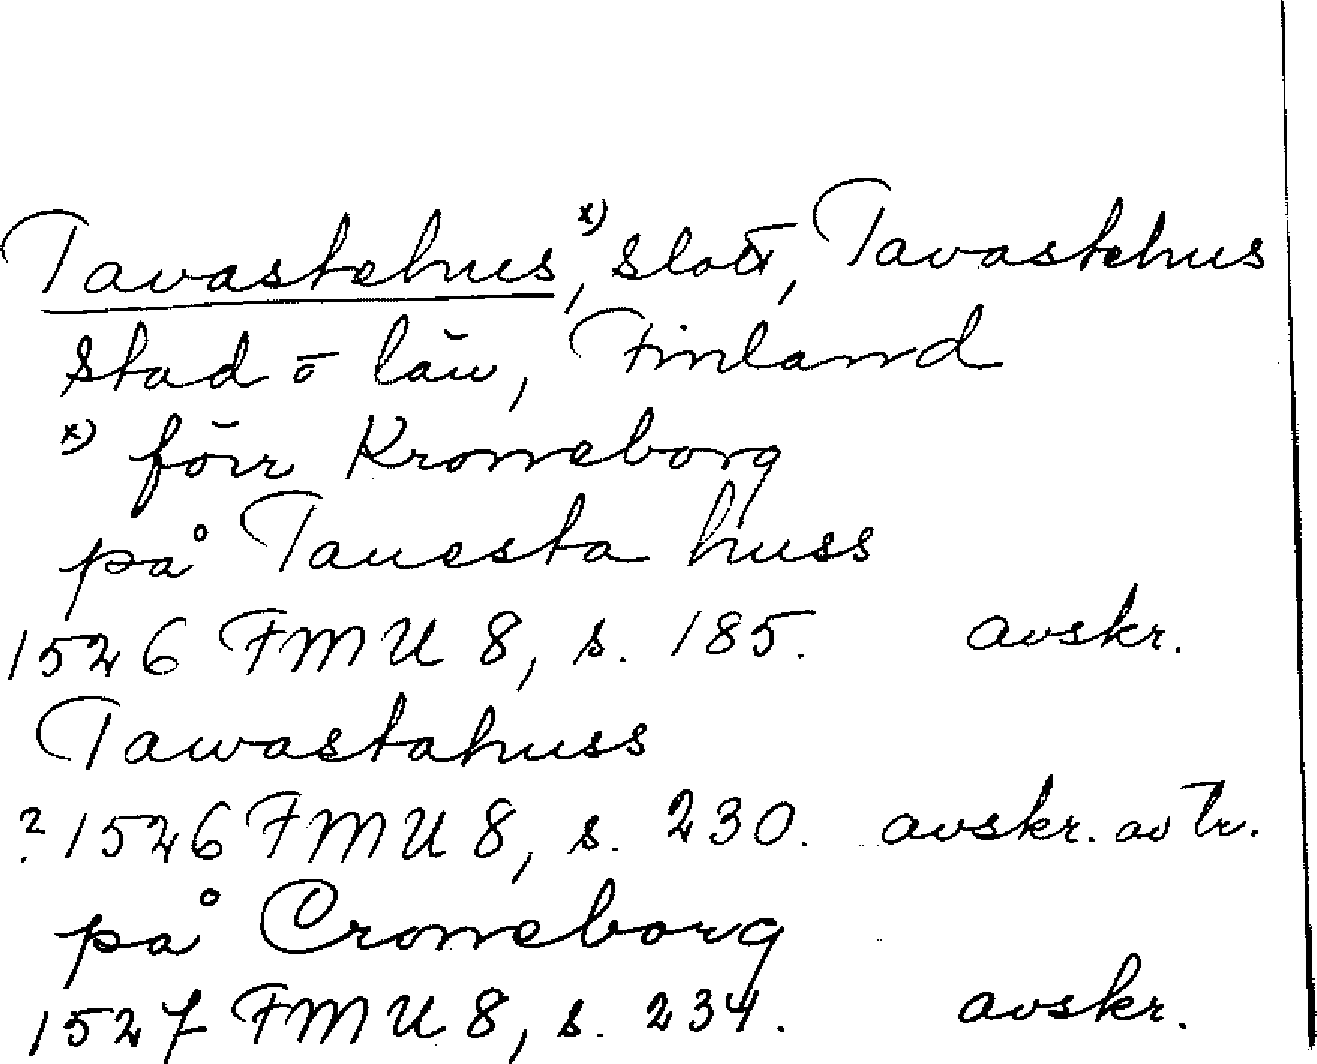 Tavastehus,ˣ⁾ slott, Tavastehus
stad o län, Finland
ˣ⁾ förr Kroneborg
på Tauesta huss
1526 FMU 8, s. 185. avskr.
Tawastahuss
? 1526 FMU 8, s. 230. avskr. av tr.
på Croneborg
1527 FMU 8, s. 234. avskr.